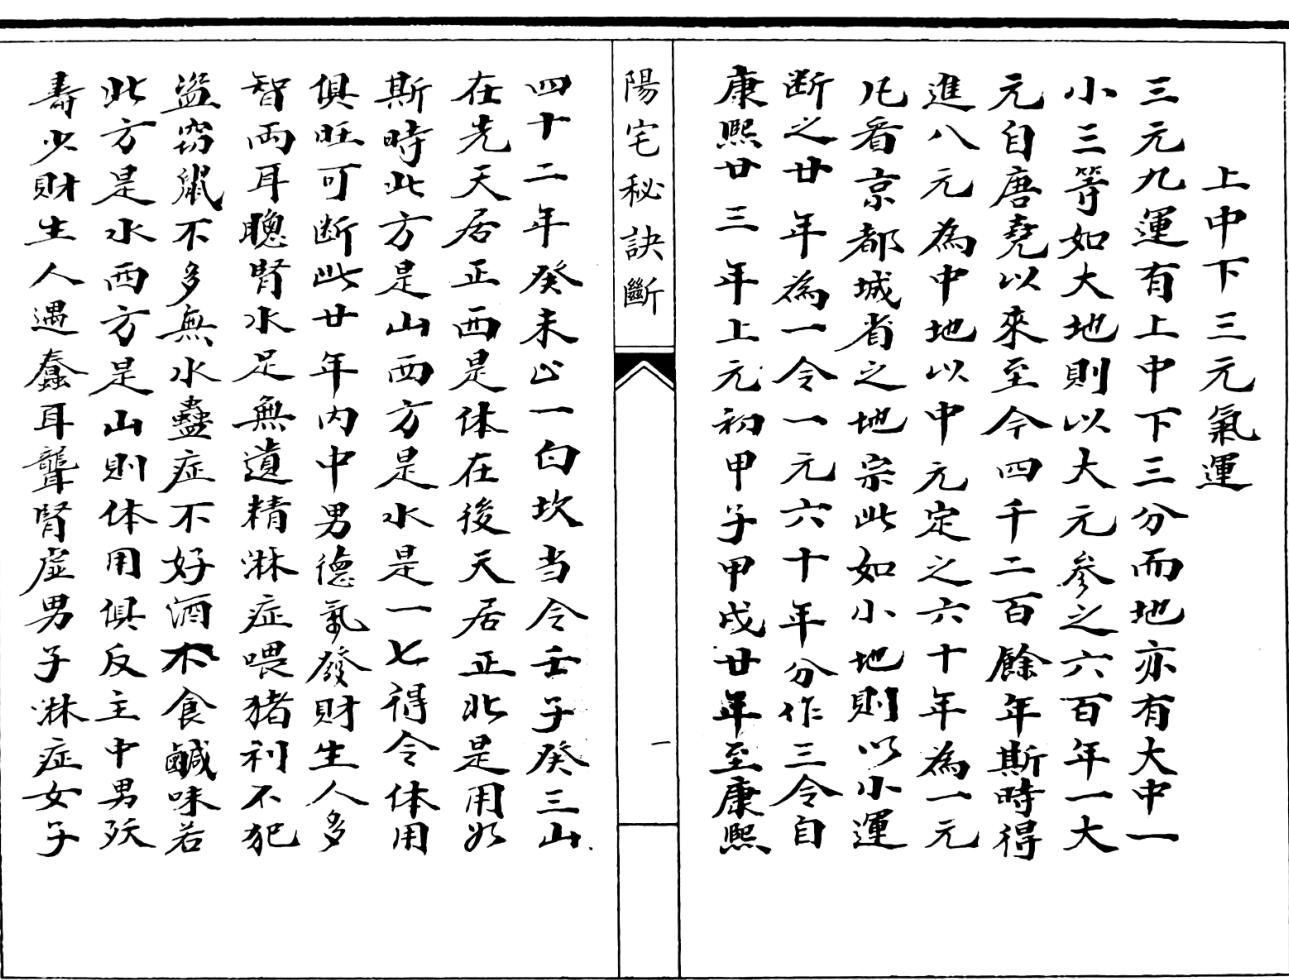 上中下三元氣運
三元九運有上中下三分而地亦有大中一
小三等如大地則以大元參之六百年一大
元自唐堯以來至今四千二百餘年斯時得
進八元為中地以中元定之六十年為一元
凡看京都城省之地宗此如小地則以小運
断之廿年為一令一元六十年分作三令自
康熙廿三年上元初甲子甲戌廿年至康熙
陽宅秘訣斷
一
四十二年癸未止一白坎当令壬子癸三山
在先天居正西是体在後天居正北是用如
斯時北方是山西方是水是一七得令体用
俱旺可断此廿年内中男德氣發財生人多
智両耳聰腎水足無遺精淋症喂猪利不犯
盜窃鼠不多無水蠱症不好酒不食鹹味若
北方是水西方是山則体用俱反主中男殀
壽少財生人遇蠢耳聾腎虛男子淋症女子